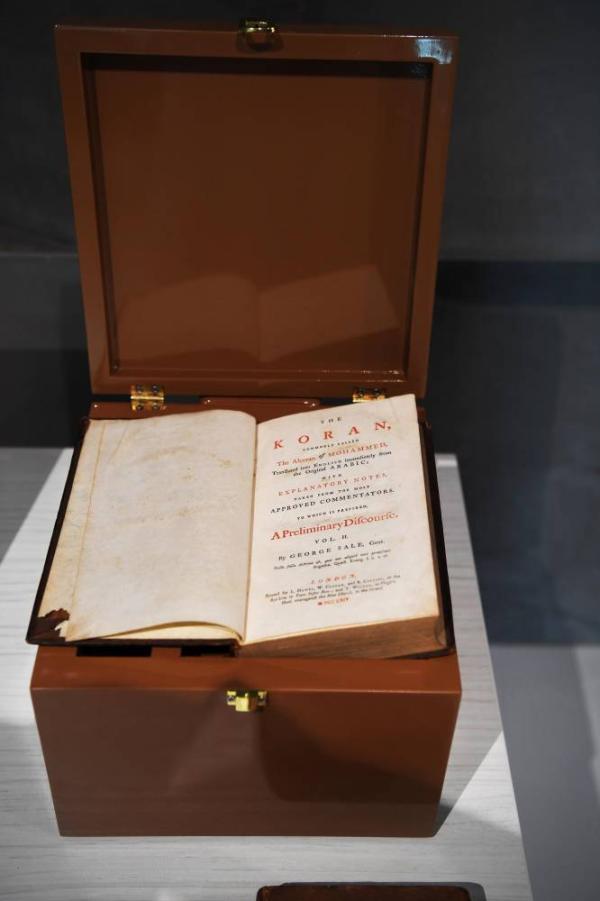 THE
KORAN,
COMMONLY CALLED
The Alcoran of MOHAMMED,
Translated into ENGLISH immediately from
the Original ARABIC;
WITH
EXPLANATORY NOTES,
TAKEN FROM THE MOST
APPROVED COMMENTATORS.
TO WHICH IS PREFIXED,
A Preliminary Discourse.
VOL. II.
By GEORGE SALE, Gent.
LONDON,